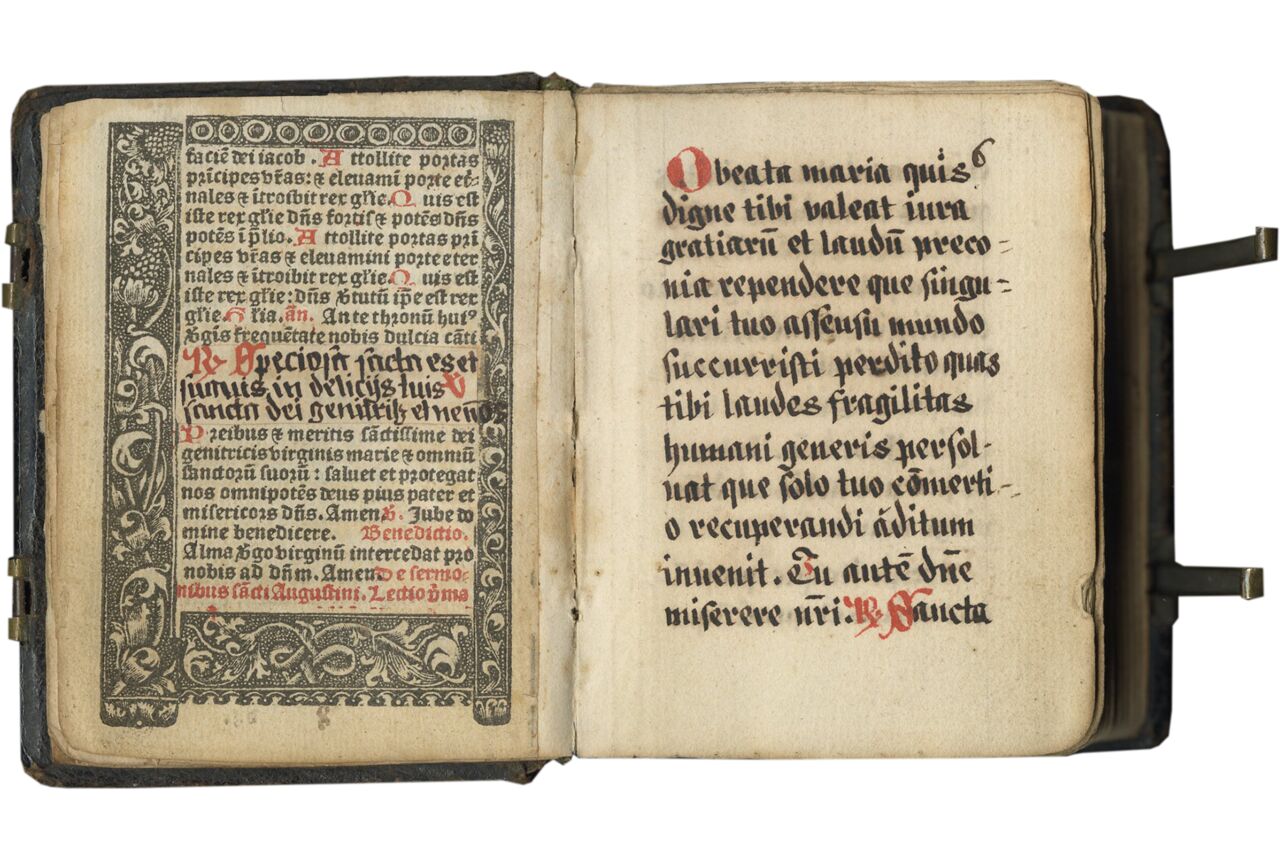 faciē dei iacob . A ttollite portas
prīcipes vr̄as: ⁊ eleuamī porte et-
nales ⁊ ītroibit rex gl̄ie. Q uis est
iste rex gl̄ie dn̄s fortis ⁊ potēs dn̄s
potēs ī p̄lio. A ttollite portas prī
cipes vr̄as ⁊ eleuamini porte eter
nales ⁊ ītroibit rex gl̄ie. Q uis est
iste rex glie: dn̄s v̄tutū ip̄e est rex
glie. G lia. an̄. Ante thronū huiꝰ
v̄gīs frequētate nobis dulcia cāti
℟ Speciosa facta es et
suauis in delicijs tuis ℣
sancta dei genitrix et nen̄os
P recibus ⁊ meritis sāctissime dei
genitricis virginis marie ⁊ omniū
sanctorū suorū : saluet et protegat
nos omnipotēs deus pius pater et
misericors dn̄s. Amen ℣. Jube do
mine benedicere. Benedictio.
Alma v̄go virginū intercedat pro
nobis ad dn̄m. Amen De sermo-
nibus sācti Augustini. Lectio p̄ma
6
O beata maria quis
digne tibi valeat iura
gratiarū et laudū preco =
nia rependere que singu =
lari tuo assensu mundo
succurristi perdito quas
tibi laudes fragilitas
humani generis persol-
uat que solo tuo cōmerti -
o recuperandi āditum
inuenit. Tu autē dn̄e
miserere nr̄i. ℟ Sancta